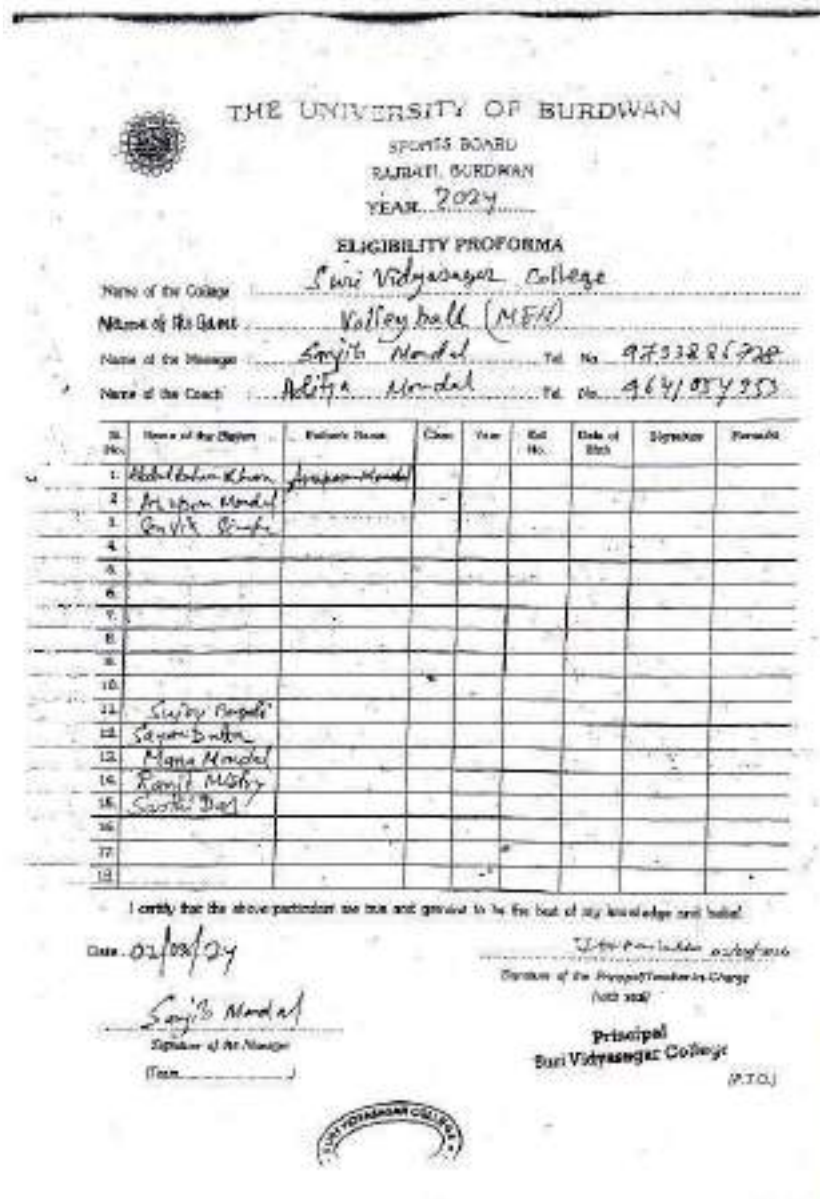 THE UNIVERSITY OF BURDWAN
SPORTS BOARD
RAJBATI, BURDWAN
YEAR 2024
ELIGIBILITY PROFORMA
Name of the College : Suri Vidyasagar College
Name of the Game : Volleyball (MEN)
Name of the Manager : Sanjib Mondal Tel. No.
Name of the Coach : Aditya Mondal Tel. No.
Sl. No. Name of the Players Father's Name Class Year Roll No. Date of Birth Signature Remarks
1. Khan Mondal
2. Mondal
3.
4.
5.
6.
7.
8.
9.
10.
11. Sujoy
12. Sayan Dutta
13. Mana Mondal
14. Ranjit Mistry
15. Das
16.
17.
18.
I certify that the above particulars are true and genuine to be the best of my knowledge and belief.
Date 02/03/24
Signature of the Principal/Teacher-in-Charge
(with seal)
Sanjib Mondal
Signature of the Manager
(Team )
Principal
Suri Vidyasagar College
(P.T.O.)
SURI VIDYASAGAR COLLEGE